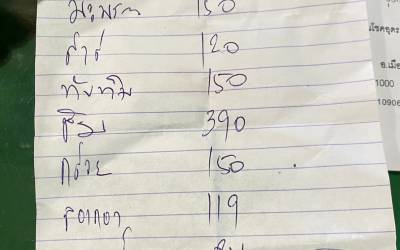 มะพร้าว 150
สาลี่ 120
ทับทิม 150
ส้ม 390
กล้วย 150
119
โชคอุดร
อ.เมือ
1000
10906